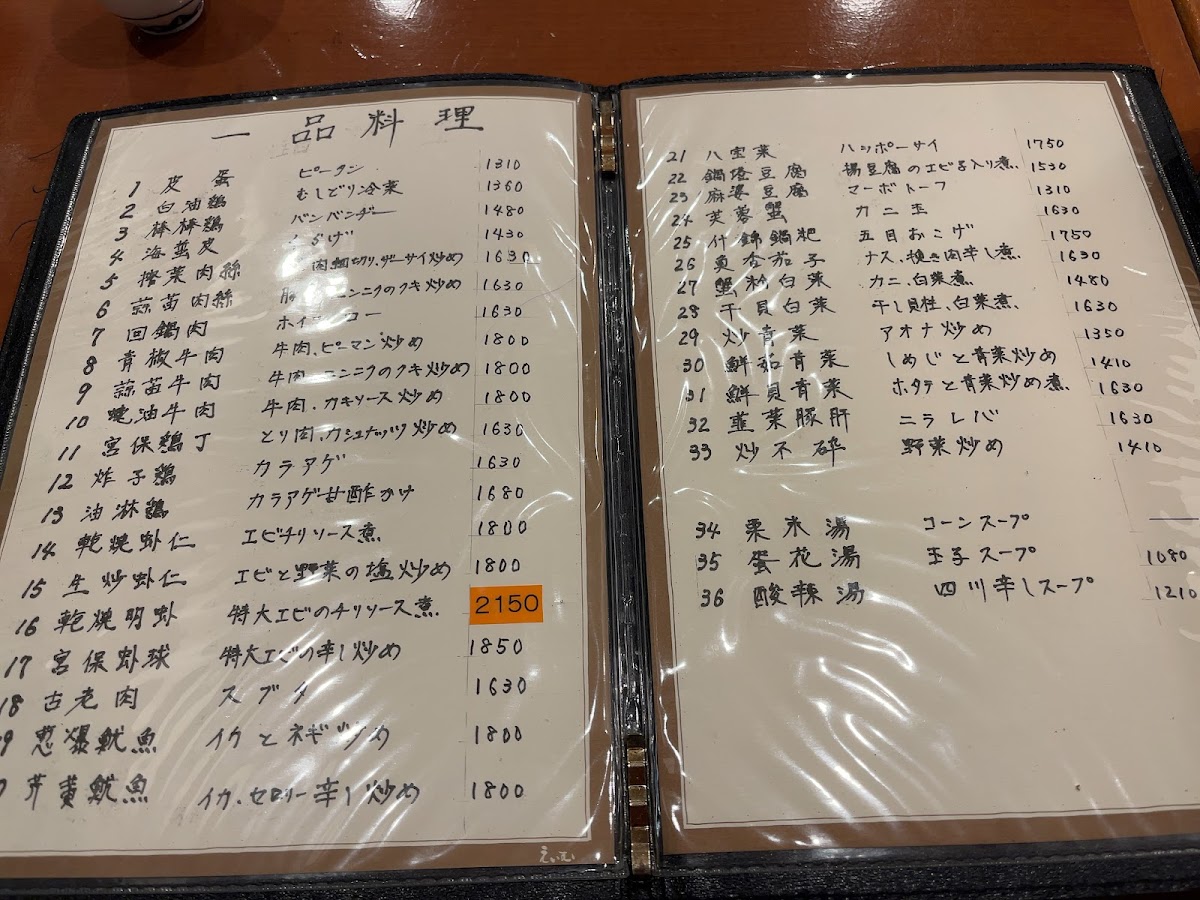 一品料理
1 皮蛋 ピータン 1310
2 白油鶏 むしどり冷菜 1360
3 棒棒鶏 バンバンヂー 1480
4 海蜇皮 くらげ 1430
5 搾菜肉絲 肉細切り、ザーサイ炒め 1630
6 蒜苗肉絲 ニンニクのクキ炒め 1630
7 回鍋肉 ホイコーロー 1630
8 青椒牛肉 牛肉、ピーマン炒め 1800
9 蒜苗牛肉 牛肉、ニンニクのクキ炒め 1800
10 蠔油牛肉 牛肉、カキソース炒め 1800
11 宮保鶏丁 とり肉、カシュナッツ炒め 1630
12 炸子鶏 カラアゲ 1630
13 油淋鶏 カラアゲ甘酢かけ 1680
14 乾焼虾仁 エビチリソース煮 1800
15 生炒虾仁 エビと野菜の塩炒め 1800
16 乾焼明虾 特大エビのチリソース煮 2150
17 宮保虾球 特大エビの辛し炒め 1850
18 古老肉 スブタ 1630
9 葱爆魷魚 イカとネギ炒め 1800
芹黄魷魚 イカ、セロリー辛し炒め 1800
えいえい
21 八宝菜 ハッポーサイ 1750
22 鍋塔豆腐 揚豆腐のエビ子入り煮 1530
23 麻婆豆腐 マーボトーフ 1310
24 芙蓉蟹 カニ玉 1630
25 什錦鍋粑 五目おこげ 1750
26 魚香茄子 ナス、挽き肉辛し煮 1630
27 蟹粉白菜 カニ、白菜煮 1480
28 干貝白菜 干し貝柱、白菜煮 1630
29 炒青菜 アオナ炒め 1350
30 鮮茹青菜 しめじと青菜炒め 1410
31 鮮貝青菜 ホタテと青菜炒め煮 1630
32 韮菜豚肝 ニラレバ 1630
33 炒不砕 野菜炒め 1410
34 粟米湯 コーンスープ
35 蛋花湯 玉子スープ 1080
36 酸辣湯 四川辛しスープ 1210